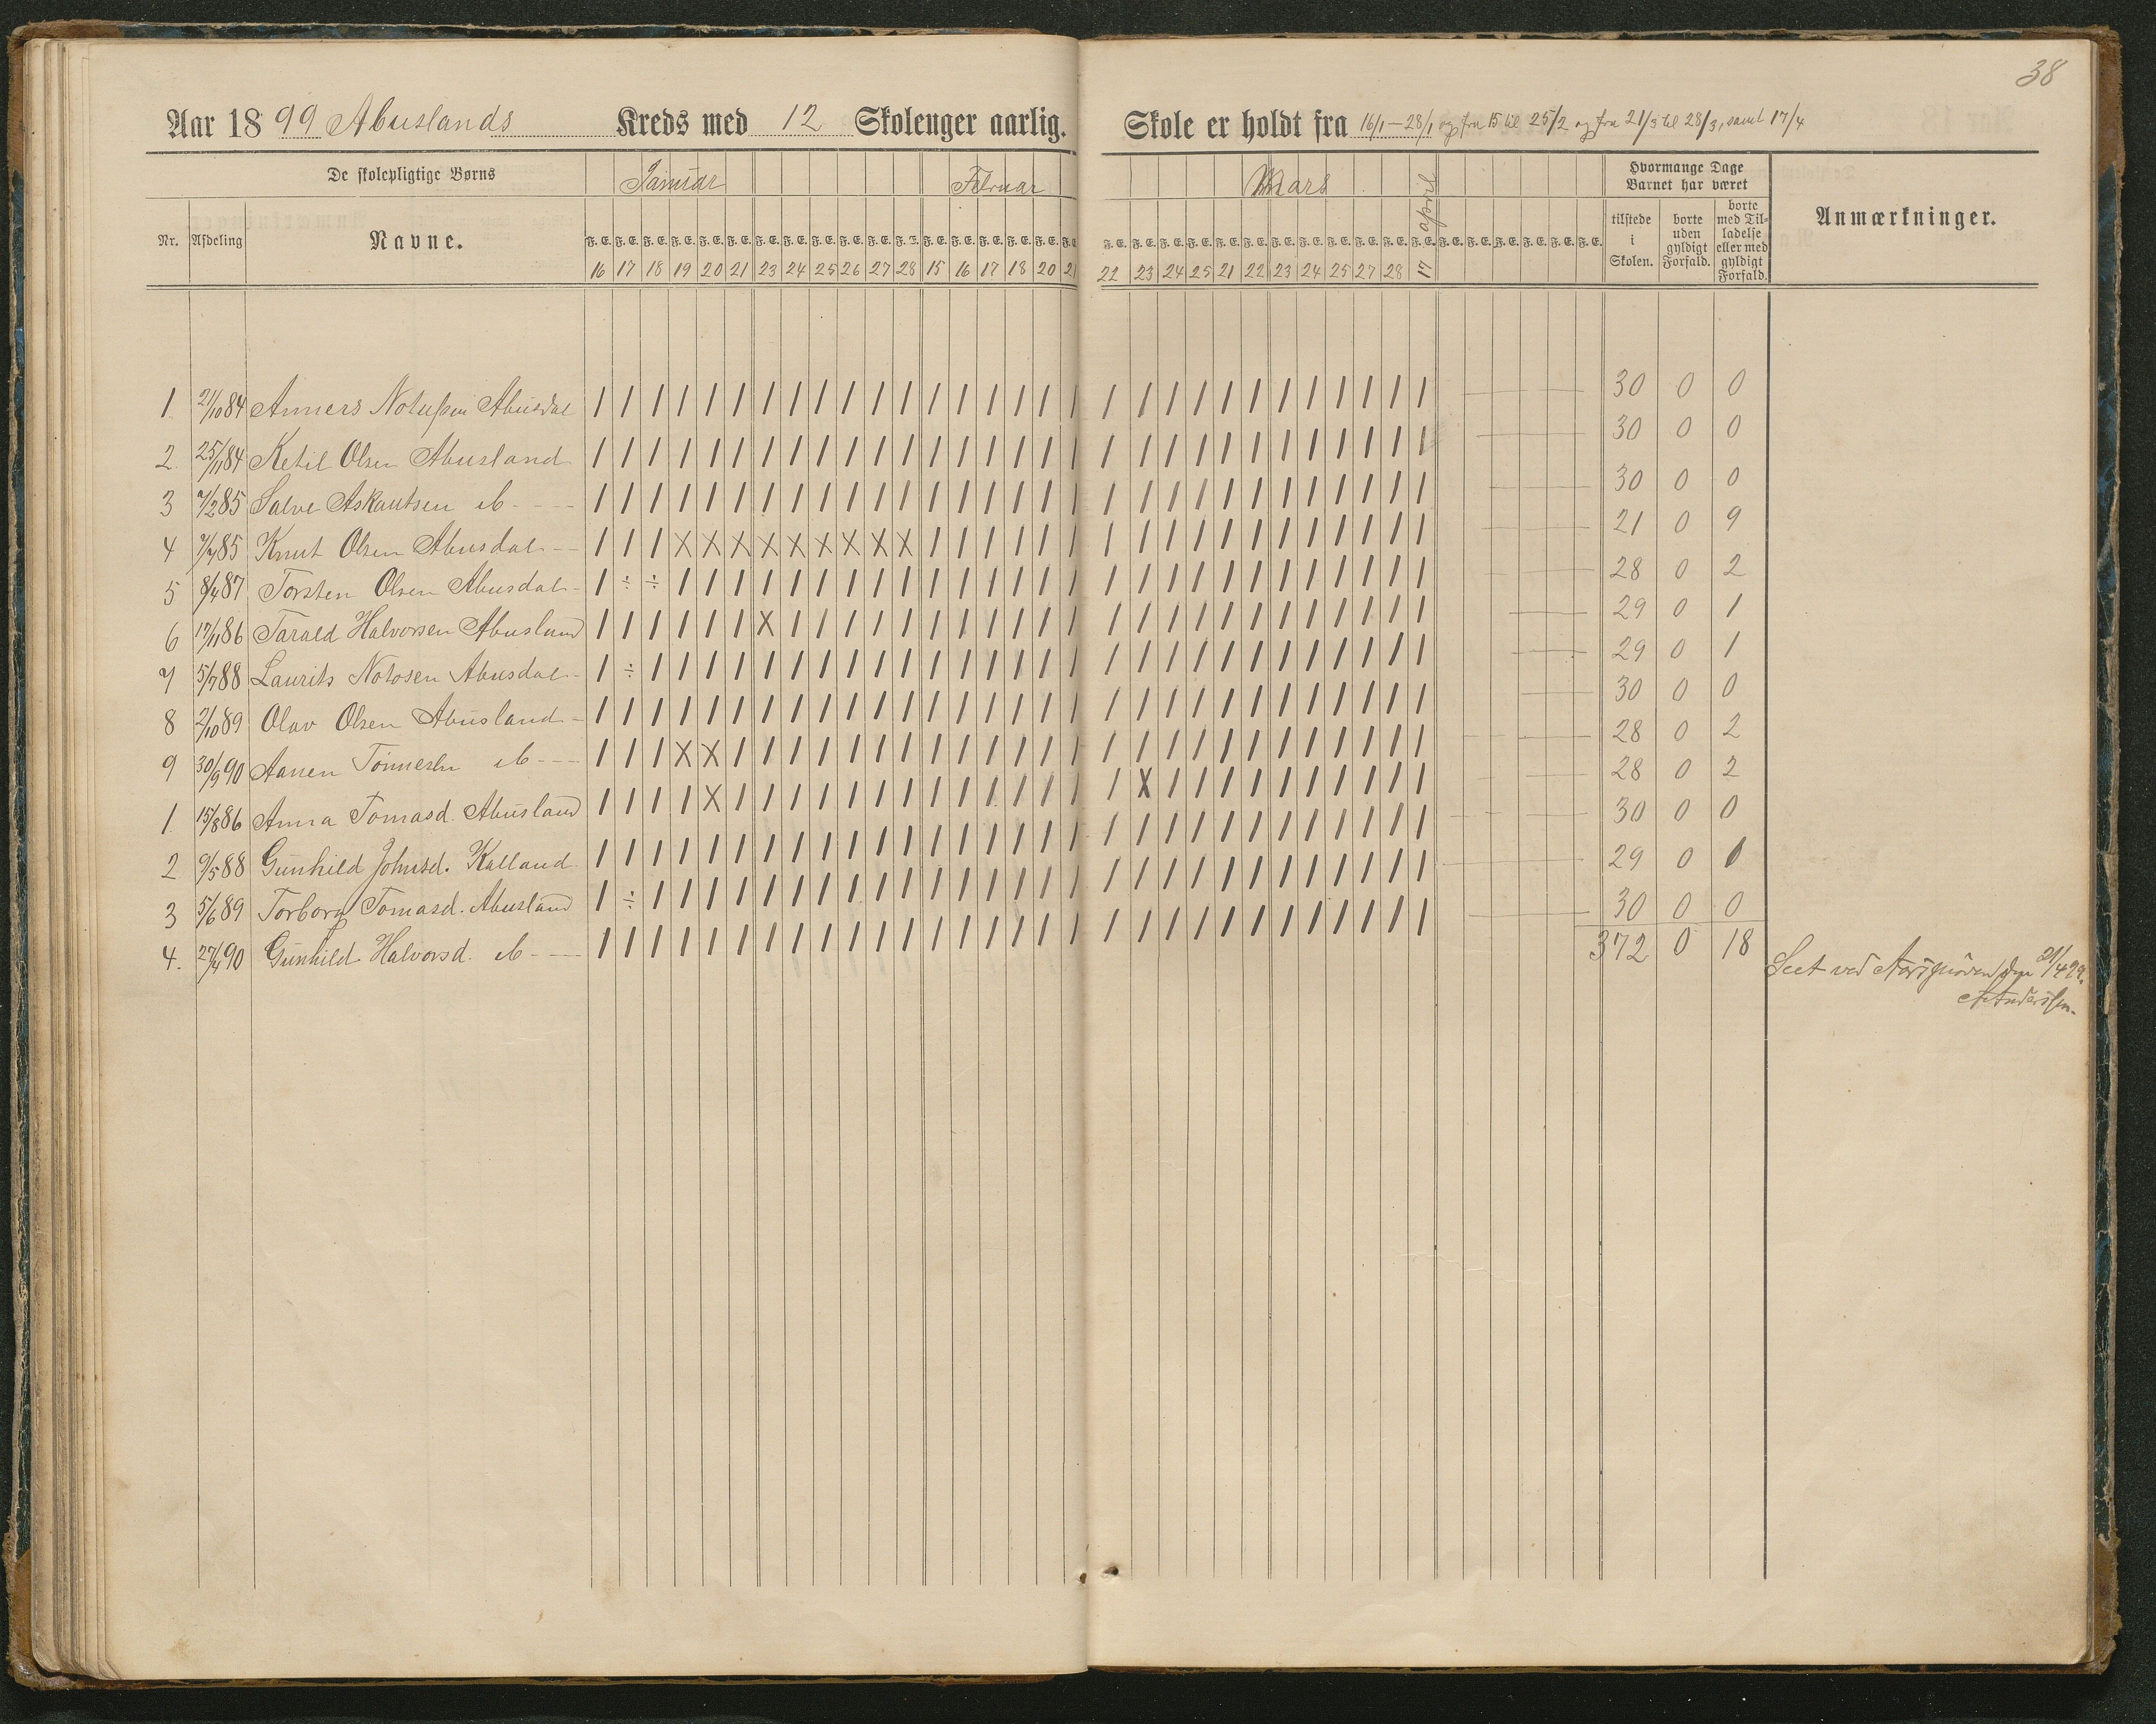 38
Aar 1899 Abuslands Kreds med 12 Skoleuger aarlig. Skole er holdt fra 16/1–28/1 og fra 15 til 25/2 og fra 21/3 til 28/3, samt 17/4
De skolepligtige Børns Januar Februar Mars april Hvormange Dage Barnet har været
Nr. Afdeling Navne. tilstede i Skolen. borte uden gyldigt Forfald. borte med Tilladelse eller med gyldigt Forfald. Anmærkninger.
F. E. F. E. F. E. F. E. F. E. F. E. F. E. F. E. F. E. F. E. F. E. F. E. F. E. F. E. F. E. F. E. F. E. F. E. F. E. F. E. F. E. F. E. F. E. F. E. F. E. F. E. F. E. F. E. F. E. F. E. F. E. F. E. F. E. F. E. F. E. F. E.
16 17 18 19 20 21 23 24 25 26 27 28 15 16 17 18 20 21 22 23 24 25 21 22 23 24 25 27 28 17
1 21/10 84 Anners Abusdal | | | | | | | | | | | | | | | | | | | | | | | | | | | | | | 30 0 0
2. 25/11 84 Ketil Olsen Abusland | | | | | | | | | | | | | | | | | | | | | | | | | | | | | | 30 0 0
3 7/2 85 Salve Askautsen do - - - | | | | | | | | | | | | | | | | | | | | | | | | | | | | | | 30 0 0
4 85 Knut Olsen Abusdal - - | | | X X X X X X X X X | | | | | | | | | | | | | | | | | | 21 0 9
5 8/4 87 Torsten Olsen Abusdal - | ÷ ÷ | | | | | | | | | | | | | | | | | | | | | | | | | | | 28 0 2
6 17/11 86 Tarald Halvorsen Abusland | | | | | | X | | | | | | | | | | | | | | | | | | | | | | | 29 0 1
7 5/7 88 Laurits Notosen Abusdal - | ÷ | | | | | | | | | | | | | | | | | | | | | | | | | | | | 29 0 1
8 2/10 89 Olav Olsen Abusland - | | | | | | | | | | | | | | | | | | | | | | | | | | | | | | 30 0 0
9 30/9 90 Aanen Tönnesen do - - - | | | X X | | | | | | | | | | | | | | | | | | | | | | | | | 28 0 2
1. 15/8 86 Anna Tomasd. Abusland | | | | X | | | | | | | | | | | | | | X | | | | | | | | | | | 28 0 2
2 9/5 88 Gunhild Johnsd. Kalland | | | | | | | | | | | | | | | | | | | | | | | | | | | | | | 30 0 0
3 5/6 89 Torborg Tomasd. Abusland | ÷ | | | | | | | | | | | | | | | | | | | | | | | | | | | | 29 0 1
4. 27/4 90 Gunhild Halvorsd. do - - - | | | | | | | | | | | | | | | | | | | | | | | | | | | | | | 30 0 0
372 0 18
Seet ved Aarsprøven den 21/4 99.